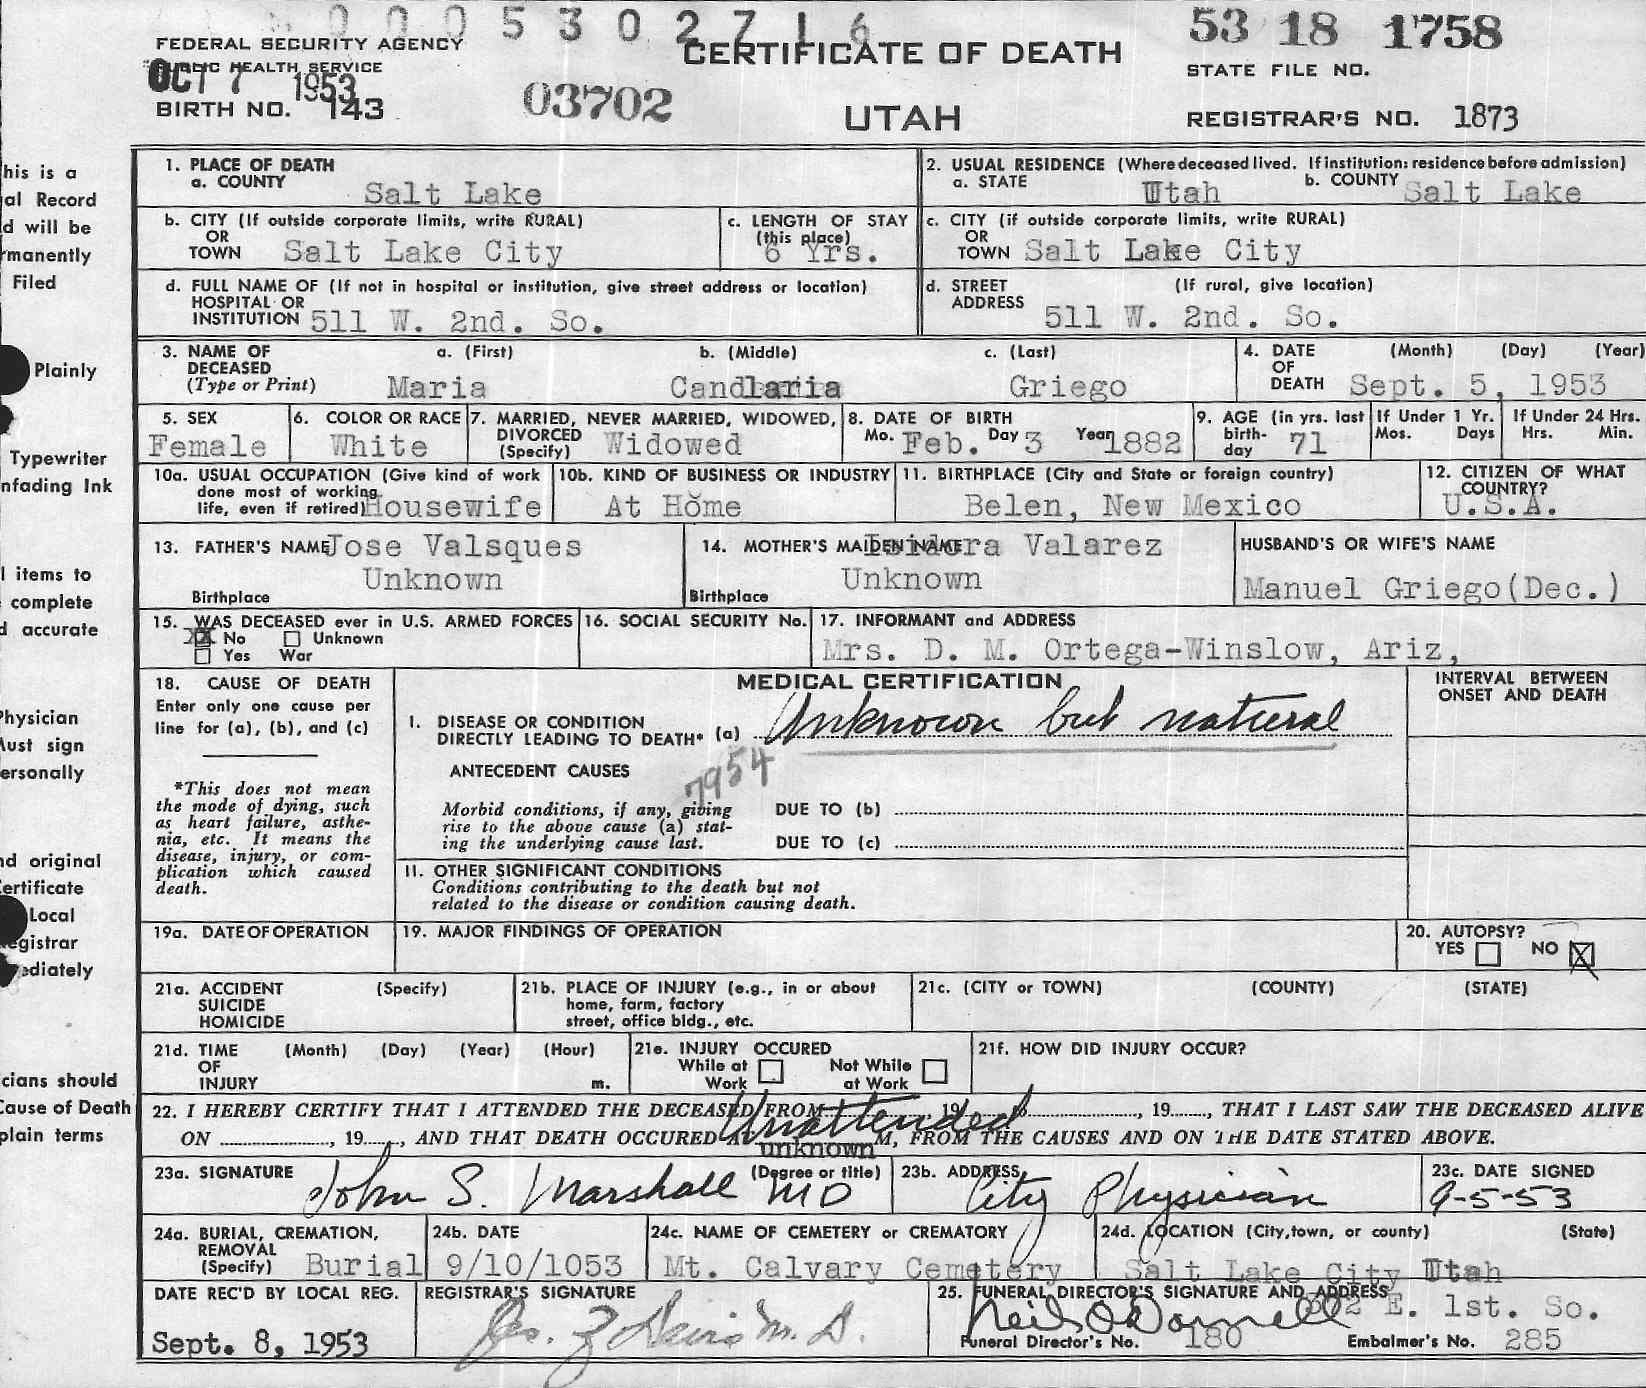 0 0 0 5 3 0 2 7 1 6
53 18 1758
FEDERAL SECURITY AGENCY
PUBLIC HEALTH SERVICE
CERTIFICATE OF DEATH
STATE FILE NO.
OCT 7 1953
BIRTH NO. 143
03702
UTAH
REGISTRAR'S NO. 1873
1. PLACE OF DEATH
a. COUNTY Salt Lake
2. USUAL RESIDENCE (Where deceased lived. If institution: residence before admission)
a. STATE Utah b. COUNTY Salt Lake
b. CITY (If outside corporate limits, write RURAL)
OR
TOWN Salt Lake City
c. LENGTH OF STAY
(this place)
6 Yrs.
c. CITY (if outside corporate limits, write RURAL)
OR
TOWN Salt Lake City
d. FULL NAME OF (If not in hospital or institution, give street address or location)
HOSPITAL OR
INSTITUTION 511 W. 2nd. So.
d. STREET (If rural, give location)
ADDRESS 511 W. 2nd. So.
3. NAME OF DECEASED (Type or Print)
a. (First) b. (Middle) c. (Last)
Maria Candlaria Griego
4. DATE OF DEATH (Month) (Day) (Year)
Sept. 5, 1953
5. SEX
Female
6. COLOR OR RACE
White
7. MARRIED, NEVER MARRIED, WIDOWED,
DIVORCED (Specify) Widowed
8. DATE OF BIRTH
Mo. Feb. Day 3 Year 1882
9. AGE (in yrs. last birth-day 71
If Under 1 Yr.
Mos. Days
If Under 24 Hrs.
Hrs. Min.
10a. USUAL OCCUPATION (Give kind of work
done most of working
life, even if retired) Housewife
10b. KIND OF BUSINESS OR INDUSTRY
At Home
11. BIRTHPLACE (City and State or foreign country)
Belen, New Mexico
12. CITIZEN OF WHAT
COUNTRY?
U.S.A.
13. FATHER'S NAME Jose Valsques
Unknown
Birthplace
14. MOTHER'S MAIDEN NAME Isidora Valarez
Unknown
Birthplace
HUSBAND'S OR WIFE'S NAME
Manuel Griego(Dec.)
15. WAS DECEASED ever in U.S. ARMED FORCES
No Unknown
Yes War
16. SOCIAL SECURITY No.
17. INFORMANT and ADDRESS
Mrs. D. M. Ortega-Winslow, Ariz,
18. CAUSE OF DEATH
Enter only one cause per
line for (a), (b), and (c)
*This does not mean
the mode of dying, such
as heart failure, asthe-
nia, etc. It means the
disease, injury, or com-
plication which caused
death.
MEDICAL CERTIFICATION
INTERVAL BETWEEN
ONSET AND DEATH
I. DISEASE OR CONDITION
DIRECTLY LEADING TO DEATH* (a) Unknown but natural
ANTECEDENT CAUSES
7954
Morbid conditions, if any, giving
rise to the above cause (a) stat-
ing the underlying cause last.
DUE TO (b)
DUE TO (c)
II. OTHER SIGNIFICANT CONDITIONS
Conditions contributing to the death but not
related to the disease or condition causing death.
19a. DATE OF OPERATION
19. MAJOR FINDINGS OF OPERATION
20. AUTOPSY?
YES NO
21a. ACCIDENT (Specify)
SUICIDE
HOMICIDE
21b. PLACE OF INJURY (e.g., in or about
home, farm, factory
street, office bldg., etc.
21c. (CITY or TOWN) (COUNTY) (STATE)
21d. TIME (Month) (Day) (Year) (Hour)
OF
INJURY m.
21e. INJURY OCCURED
While at Work Not While at Work
21f. HOW DID INJURY OCCUR?
22. I HEREBY CERTIFY THAT I ATTENDED THE DECEASED FROM Unattended, 19 to, 19, THAT I LAST SAW THE DECEASED ALIVE
ON, 19, AND THAT DEATH OCCURED AT unknown M, FROM THE CAUSES AND ON THE DATE STATED ABOVE.
23a. SIGNATURE (Degree or title)
John S. Marshall MD
23b. ADDRESS
City Physician
23c. DATE SIGNED
9-5-53
24a. BURIAL, CREMATION,
REMOVAL
(Specify) Burial
24b. DATE
9/10/1053
24c. NAME OF CEMETERY or CREMATORY
Mt. Calvary Cemetery
24d. LOCATION (City, town, or county) (State)
Salt Lake City Utah
DATE REC'D BY LOCAL REG.
Sept. 8, 1953
REGISTRAR'S SIGNATURE
25. FUNERAL DIRECTOR'S SIGNATURE AND ADDRESS
Neil O'Donnell 372 E. 1st. So.
Funeral Director's No. 180 Embalmer's No. 285
his is a
al Record
d will be
rmanently
Filed
Plainly
Typewriter
nfading Ink
l items to
complete
d accurate
Physician
Must sign
ersonally
nd original
ertificate
Local
egistrar
ediately
cians should
Cause of Death
plain terms